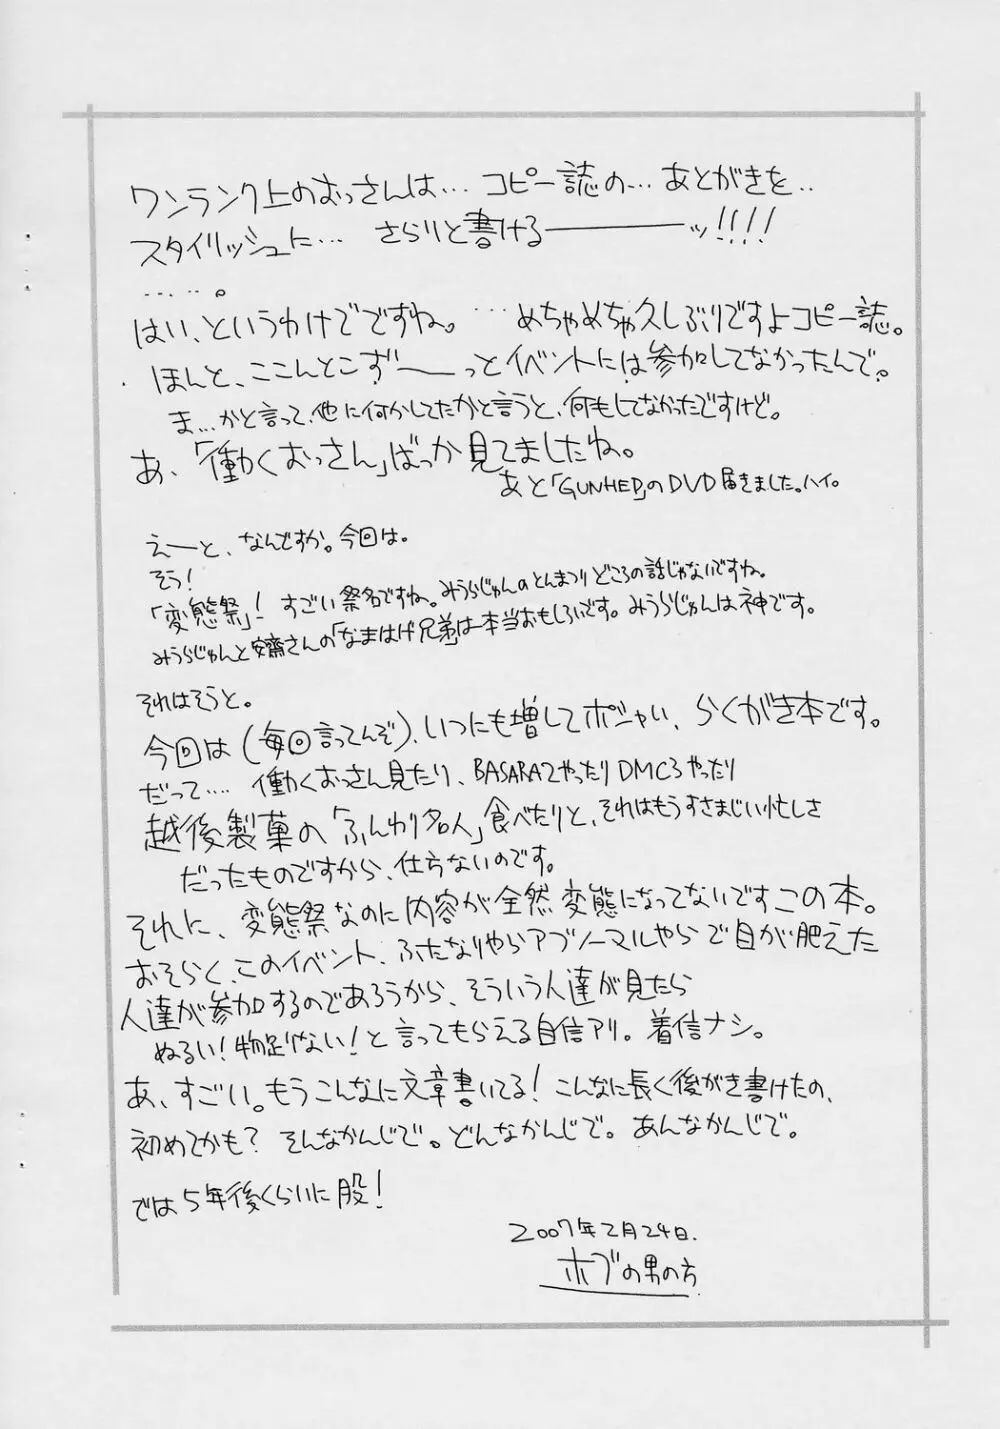 ワンランク上のおっさんは… コピー誌の… あとがきを‥
スタイリッシュに… さらりと書けるーーーッ!!!!
‥‥‥。
はい、というわけでですね。…めちゃめちゃ久しぶりですよコピー誌。
ほんと、ここんとこず〜〜っとイベントには参加してなかったんで。
ま…かと言って、他に何かしてたかと言うと、何もしてなかったですけど。
あ、「働くおっさん」ばっか見てましたね。
あと「GUNHED」のDVD届きました。ハイ。
えーと、なんですか。今回は。
そう!
「変態祭」! すごい祭名ですね。みうらじゅんのとんまつりどころの話じゃないですね。
みうらじゅんと安齋さんの「なまはげ兄弟」は本当おもしろいです。みうらじゅんは神です。
それはそうと。
今回は(毎回言ってんぞ)、いつにも増してポシャい、らくがき本です。
だって…‥ 働くおっさん見たり、BASARA2やったりDMC3やったり
越後製菓の「ふんわり名人」食べたりと、それはもうすさまじい忙しさ
だったものですから、仕方ないのです。
それに、変態祭なのに内容が全然変態になってないですこの本。
おそらく、このイベント、ふたなりやらアブノーマルやらで目が肥えた
人達が参加するのであろうから、そういう人達が見たら
ぬるい!物足りない!と言ってもらえる自信アリ。着信ナシ。
あ、すごい。もうこんなに文章書いてる!こんなに長く後がき書けたの、
初めてかも? そんなかんじで。どんなかんじで。あんなかんじで。
では5年後くらいに股!
2007年2月24日.
ホブの男の方